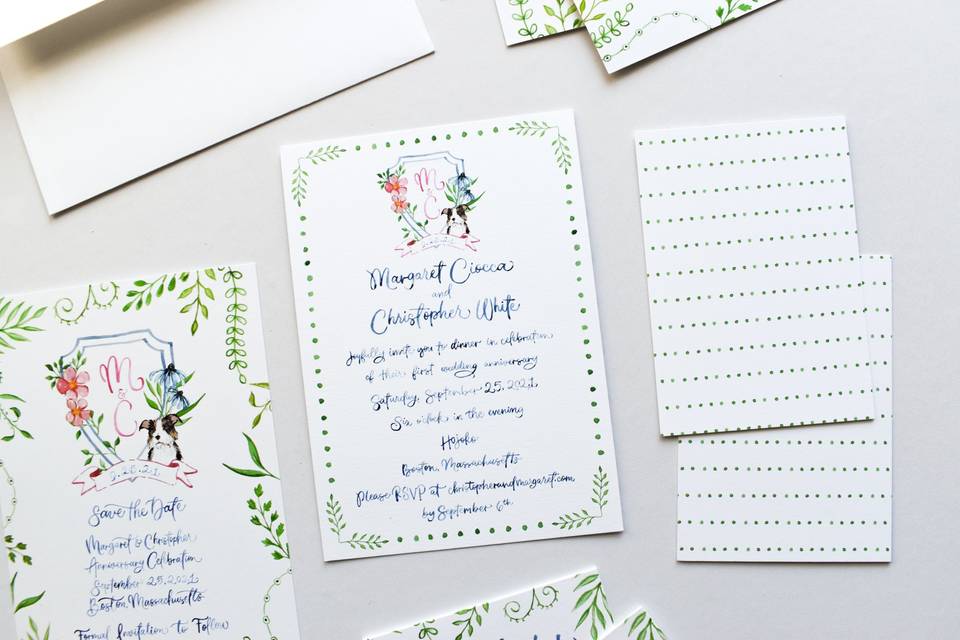 M
&
C
9.25.21
Margaret Ciocca
and
Christopher White
joyfully invite you to dinner in celebration
of their first wedding anniversary
Saturday, September 25, 2021
Six o'clock in the evening
Hojoko
Boston, Massachusetts
Please RSVP at christopherandmargaret.com
by September 6th
M
&
C
Save the Date
Margaret & Christopher
Anniversary Celebration
September 25, 2021
Boston, Massachusetts
Formal Invitation to Follow